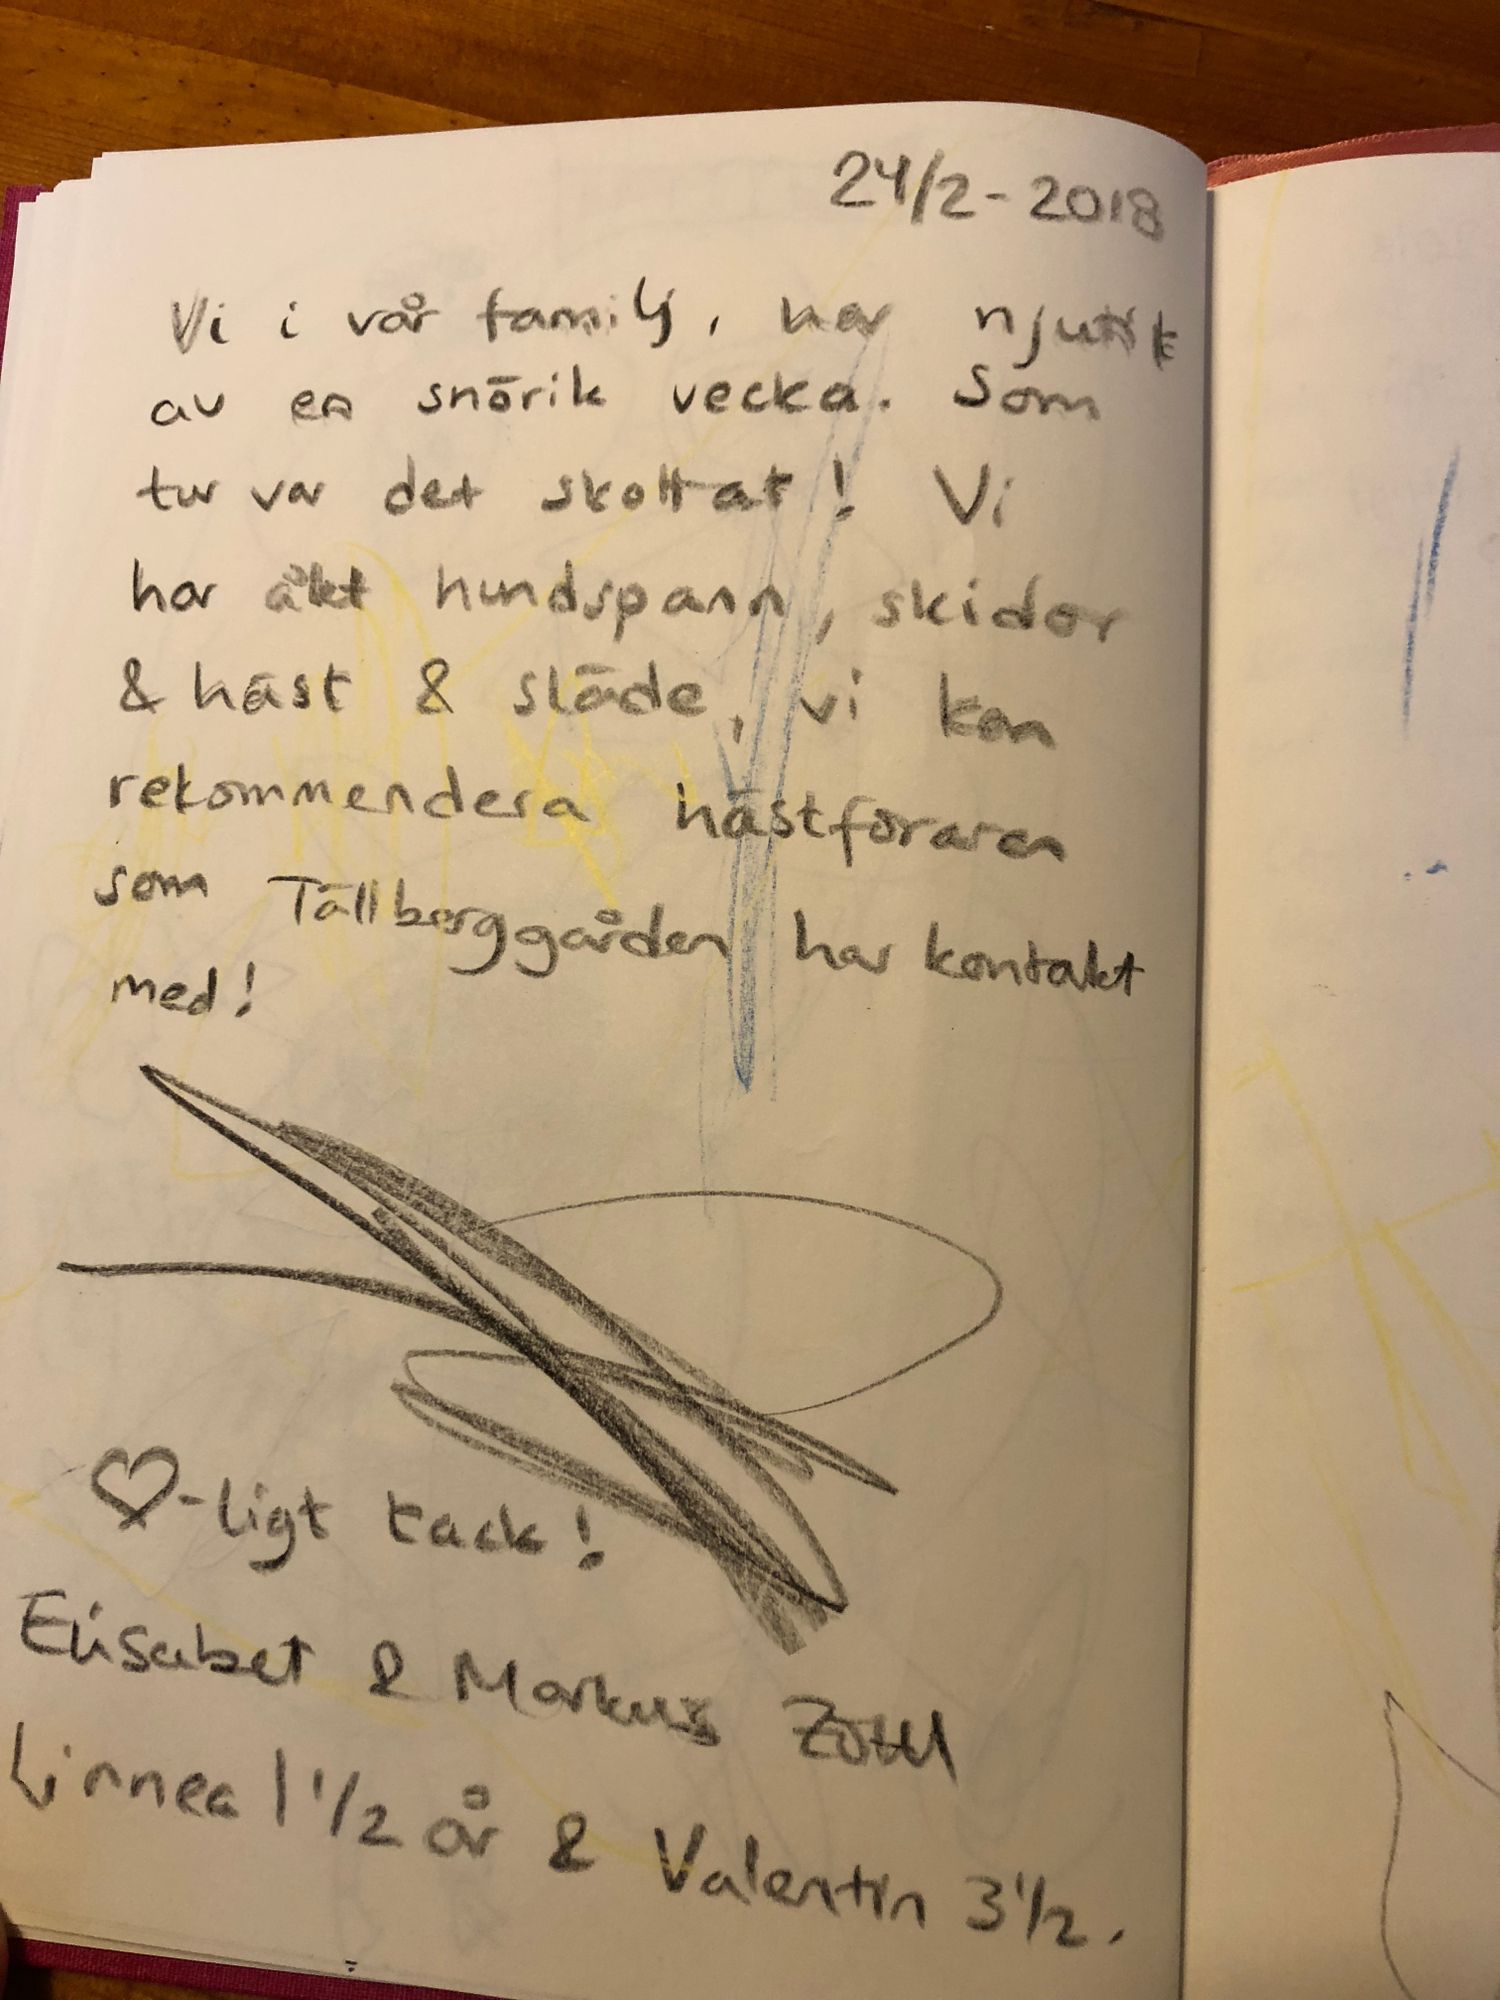 24/2-2018
Vi i vår familj, har njutit
av en snörik vecka. Som
tur var det skottat! Vi
har åkt hundspann, skidor
& häst & släde, vi kan
rekommendera hästföraren
som Tällberggården har kontakt
med!
♡-ligt tack!
Elisabet & Markus
Linnea 1 1/2 år & Valentin 3 1/2.